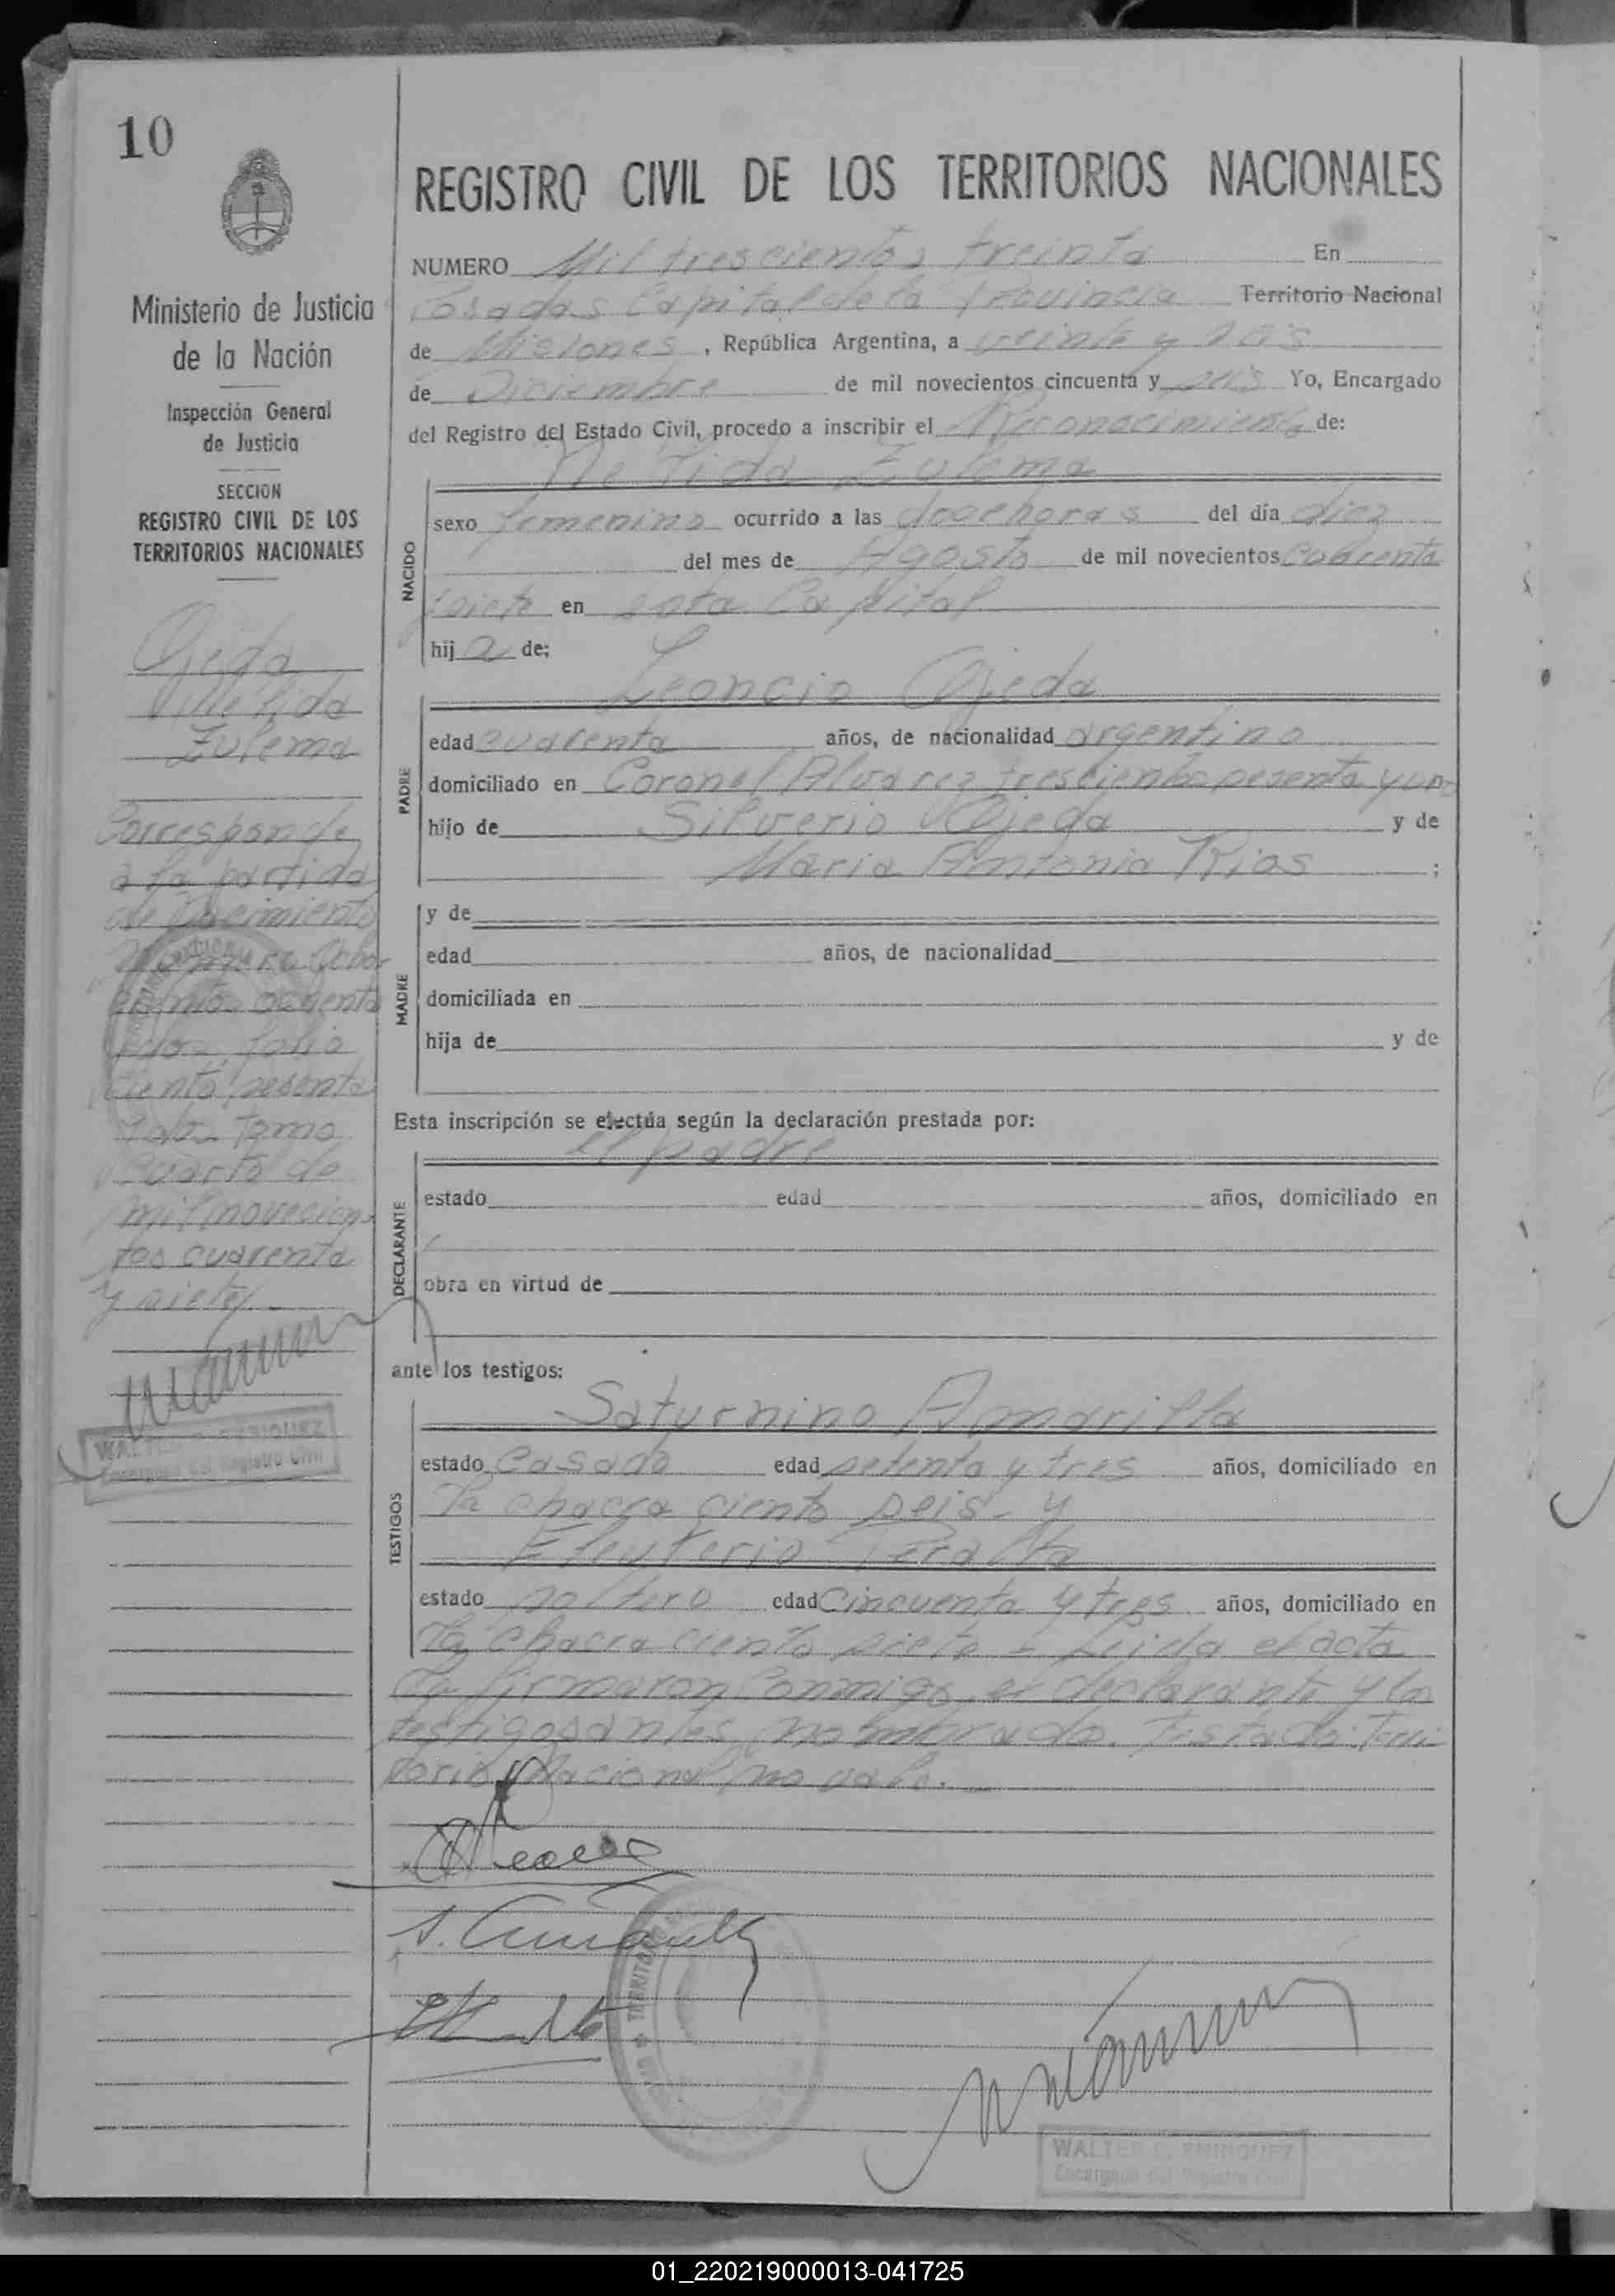 10
REGISTRO CIVIL DE LOS TERRITORIOS NACIONALES
Ministerio de Justicia
de la Nación
Inspección General
de Justicia
SECCION
REGISTRO CIVIL DE LOS
TERRITORIOS NACIONALES
Ojeda
Nélida
Zulema
Corresponde
a la partida
de Nacimiento
número ocho
cientos ochenta
y dos folio
ciento sesenta
y dos Tomo
cuarto de
mil novecien
tos cuarenta
y siete.
WALTER C. ENRIQUEZ
Encargado del Registro Civil
NUMERO Mil trescientos treinta En
Posadas Capital de la Provincia Territorio Nacional
de Misiones, República Argentina, a veinte y seis
de Diciembre de mil novecientos cincuenta y seis Yo, Encargado
del Registro del Estado Civil, procedo a inscribir el Reconocimiento de:
Nélida Zulema
NACIDO
sexo femenino ocurrido a las doce horas del día diez
del mes de Agosto de mil novecientos cuarenta
y siete en esta Capital
hija de:
Leoncio Ojeda
PADRE
edad cuarenta años, de nacionalidad argentino
domiciliado en Coronel Alvarez trescientos sesenta y uno
hijo de Silverio Ojeda y de
Maria Antonia Rios ;
MADRE
y de
edad años, de nacionalidad
domiciliada en
hija de y de
Esta inscripción se efectúa según la declaración prestada por:
el padre
DECLARANTE
estado edad años, domiciliado en
obra en virtud de
ante los testigos:
TESTIGOS
Saturnino Amarilla
estado Casado edad setenta y tres años, domiciliado en
la chacra ciento seis y
Eleuterio Peralta
estado soltero edad Cincuenta y tres años, domiciliado en
la chacra ciento siete - Leida el acta
la firmaron conmigo, el declarante y los
testigos antes nombrado. Testado: Terri
torio Nacional no vale.
S. Amarilla
TERRITO
WALTER C. ENRIQUEZ
Encargado del Registro Civil
01_220219000013-041725